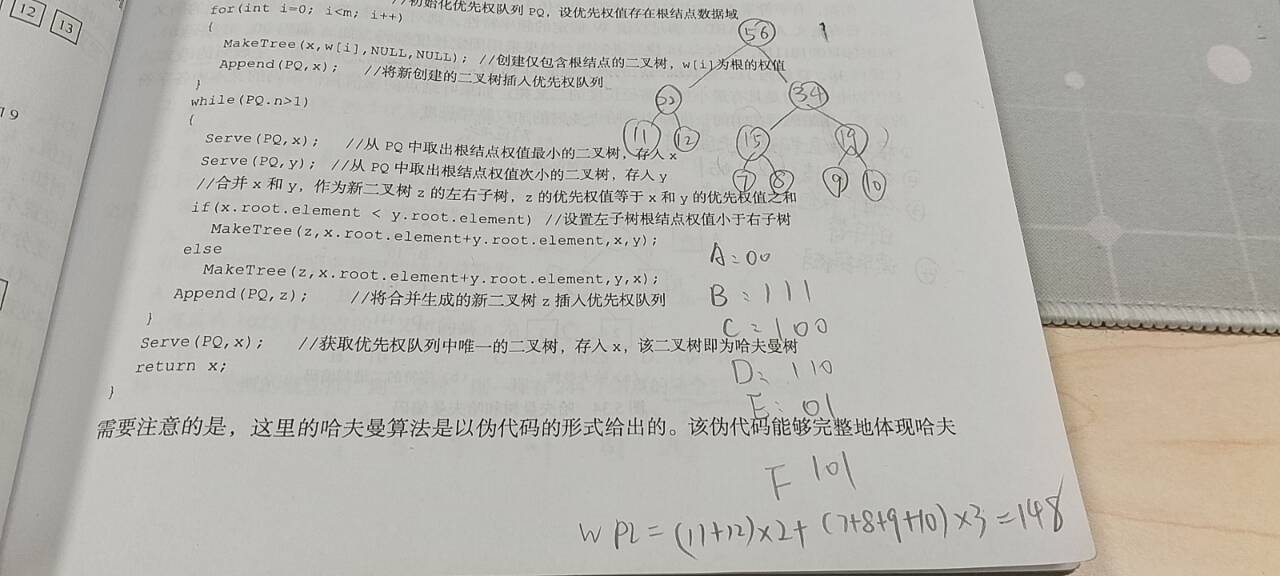 12
13
19
//初始化优先权队列 PQ，设优先权值存在根结点数据域
for(int i=0; i<m; i++)
{
MakeTree(x,w[i],NULL,NULL); //创建仅包含根结点的二叉树，w[i]为根的权值
Append(PQ,x); //将新创建的二叉树插入优先权队列
}
while(PQ.n>1)
{
Serve(PQ,x); //从 PQ 中取出根结点权值最小的二叉树，存入 x
Serve(PQ,y); //从 PQ 中取出根结点权值次小的二叉树，存入 y
//合并 x 和 y，作为新二叉树 z 的左右子树，z 的优先权值等于 x 和 y 的优先权值之和
if(x.root.element < y.root.element) //设置左子树根结点权值小于右子树
MakeTree(z,x.root.element+y.root.element,x,y);
else
MakeTree(z,x.root.element+y.root.element,y,x);
Append(PQ,z); //将合并生成的新二叉树 z 插入优先权队列
}
Serve(PQ,x); //获取优先权队列中唯一的二叉树，存入 x，该二叉树即为哈夫曼树
return x;
}
需要注意的是，这里的哈夫曼算法是以伪代码的形式给出的。该伪代码能够完整地体现哈夫
56
34
11 12 15 19
7 8 9 10
A=00
B=111
C=100
D=110
E=01
F 101
WPL=(11+12)×2+(7+8+9+10)×3=148